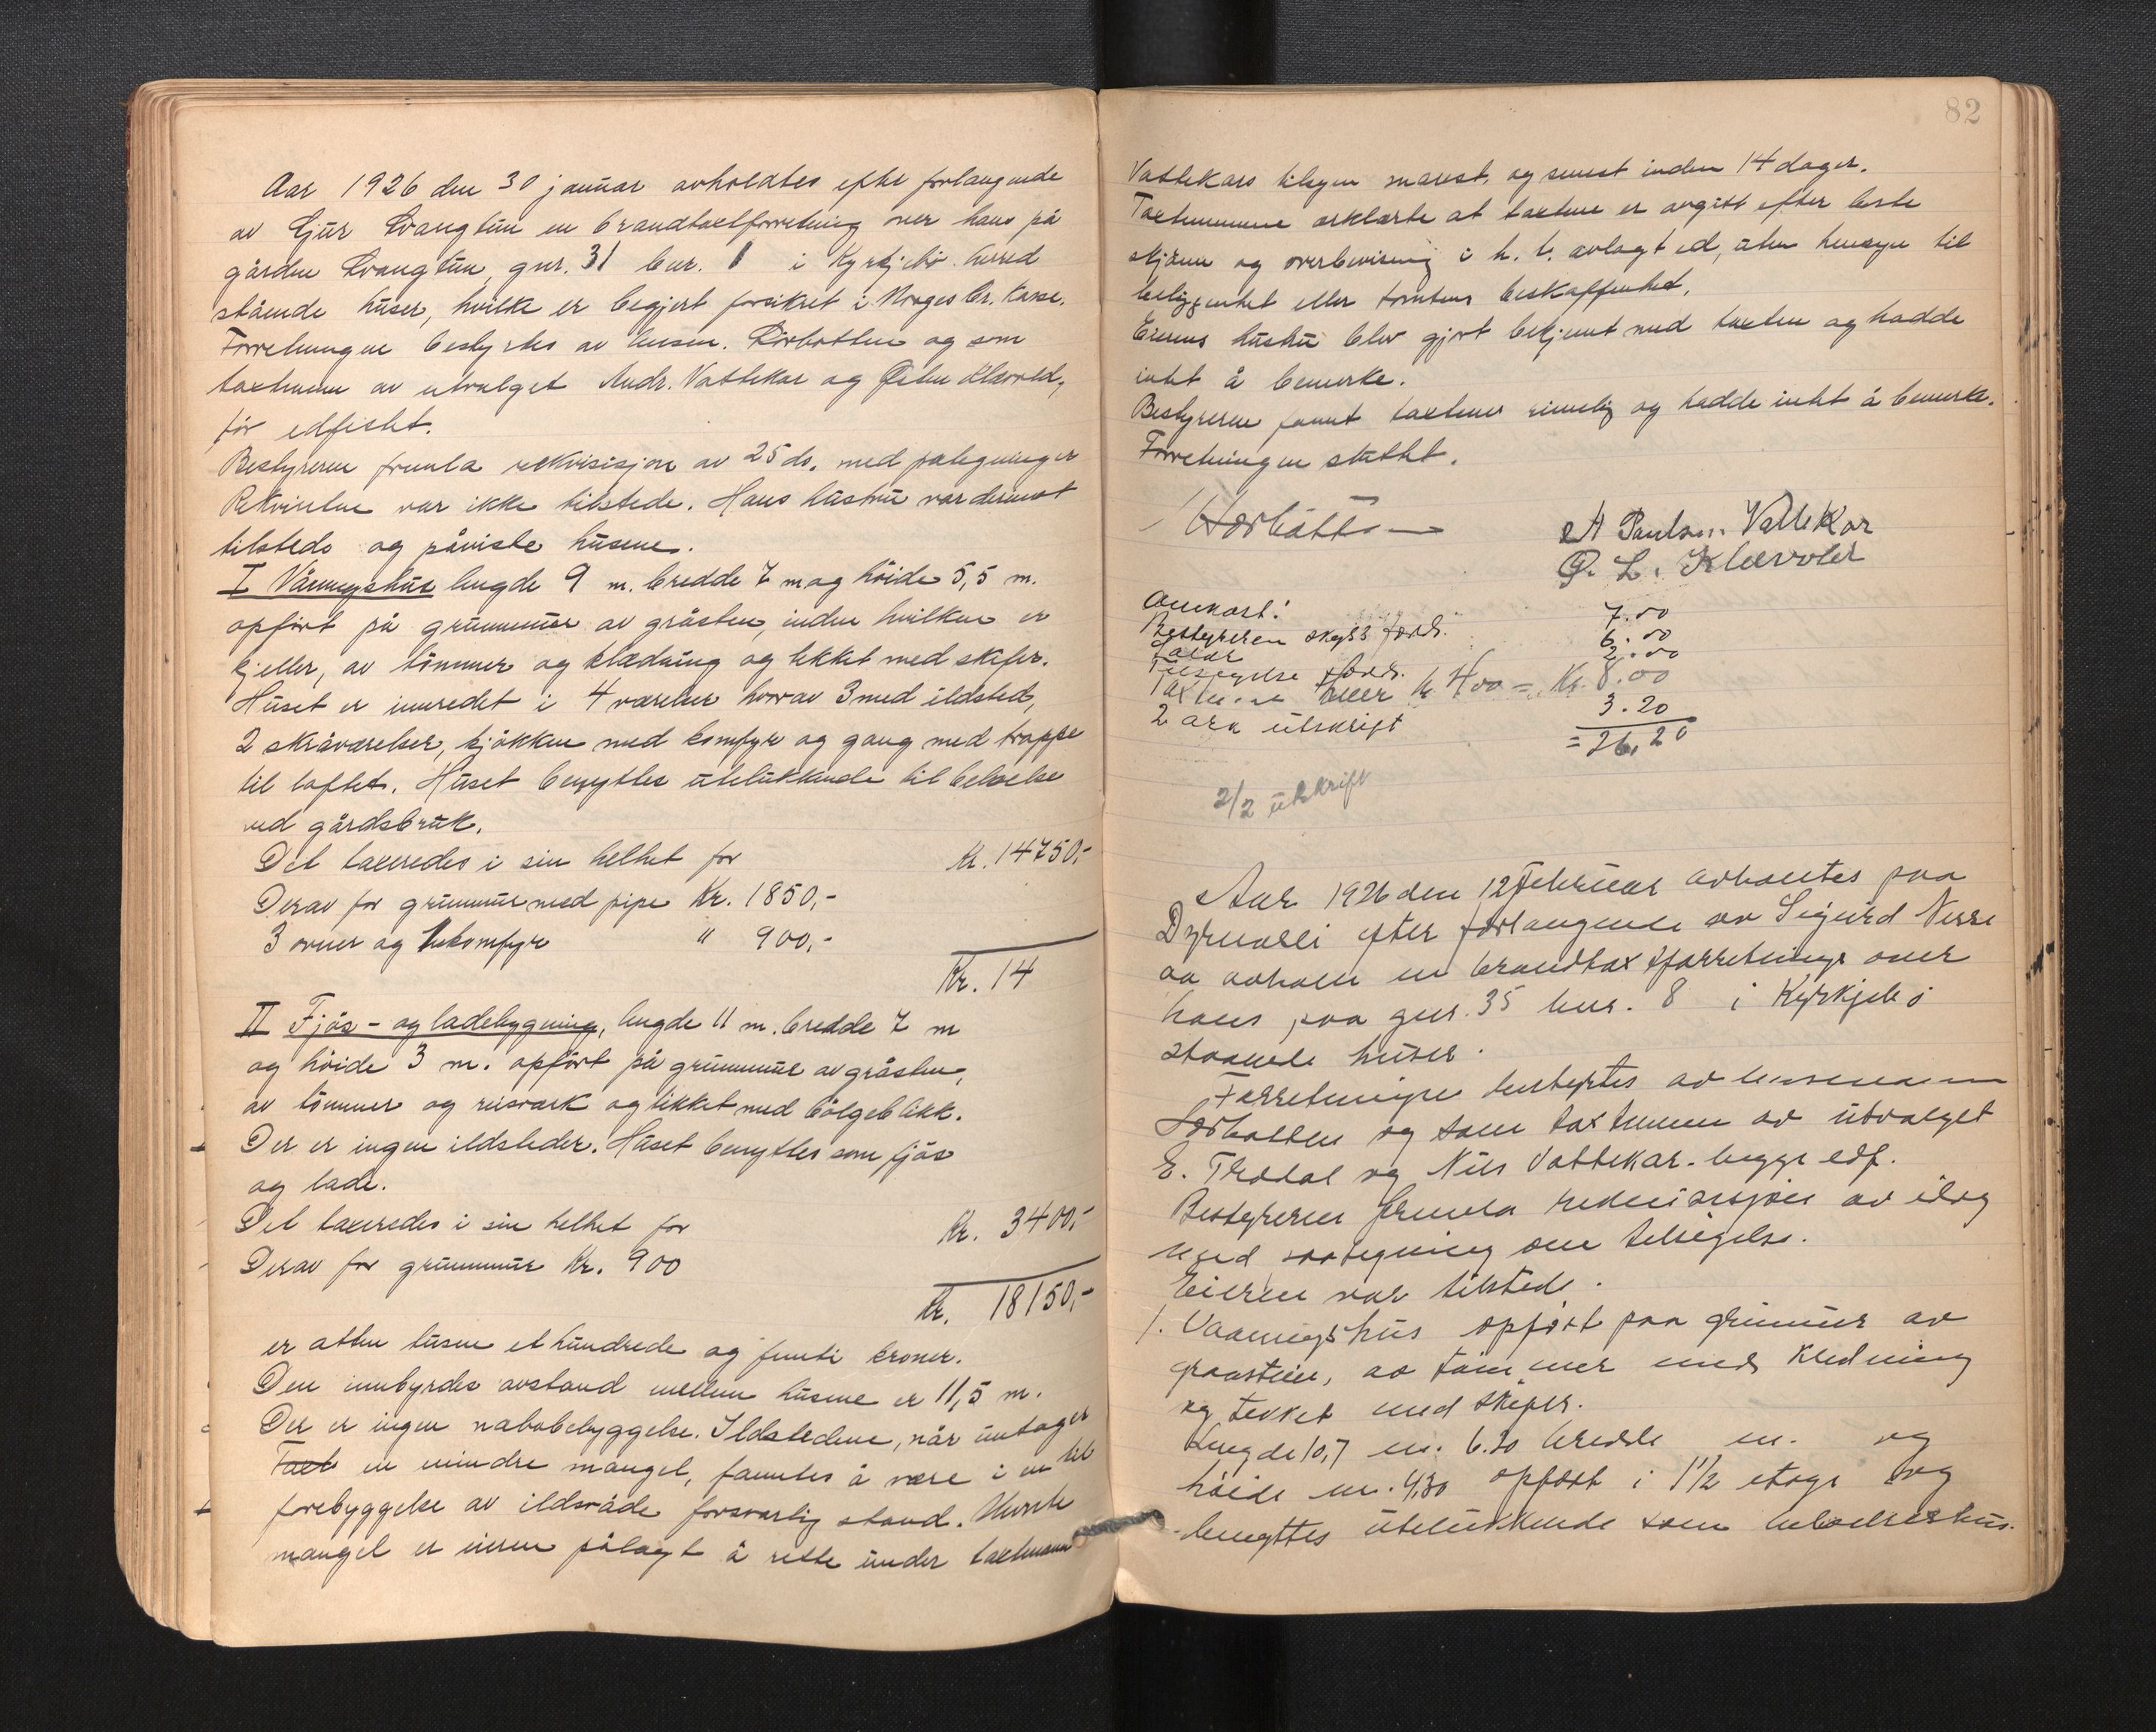 Aar 1926 den 30 januar avholdtes efter forlangende
av Gjur Svangtun en brandtaxtforretning over hans på
gården Svangtun, gnr. 31 bnr. 1 i Kyrkjebø herred
stående huser, hvilke er begjert forsikret i Norges Br. Kasse.
Forretningen bestyrtes av lensm. Hørbotten og som
taxtmenn av utvalget Andr. Vattekar og Klævold,
før edfestet.
Bestyreren fremla rekvisisjon av 25 ds. med påtegninger
Rekvirenten var ikke tilstede. Hans hustru var derimot
tilstede og påviste husene.
I Våningshus lengde 9 m. bredde 7 m og høide 5,5 m.
opført på grunnmur av gråsten, inden hvilken er
kjeller, av tømmer og klædning og tekket med skifer.
Huset er innredet i 4 værelser hvorav 3 med ildsted,
2 skråværelser, kjøkken med komfyr og gang med trappe
til loftet. Huset benyttes utelukkende til beboelse
ved gårdsbruk.
Det taxeredes i sin helhet for Kr. 14750,-
Derav for grunnmur med pipe Kr. 1850,-
3 ovner og 1 komfyr " 900,-
Kr. 14
II Fjøs- og ladebygning, lengde 11 m. bredde 7 m
og høide 3 m. opført på grunnmur av gråsten,
av tømmer og reisverk og tekket med bølgeblikk.
Der er ingen ildsteder. Huset benyttes som fjøs
og lade.
Det taxeredes i sin helhet for Kr. 3400,-
Derav for grunnmur Kr. 900
Kr. 18150,-
er atten tusen et hundrede og femti kroner.
Den innbyrdes avstand mellem husene er 11,5 m.
Der er ingen nabobebyggelse. Ildstedene, når untager
Taxt en mindre mangel, fantes å være i en til
forebyggelse av ildsvåde forsvarlig stand. Nevnte
mangel er eieren pålagt å rette under taxtmann
82
Vattekars tilsyn snarest, og senest inden 14 dager.
Taxtmennene erklærte at taxtene er avgitt efter beste
skjønn og overbevisning i h. t. avlagt ed, uten hensyn til
beliggenhet eller tomtens beskaffenhet.
Eierens hustru blev gjort bekjent med taxten og hadde
intet å bemerke.
Bestyreren fannt taxtene rimelig og hadde intet å bemerke.
Forretningen sluttet.
Hørbotten
A Paulsen Vattekar
L. Klævold
Omkost:
7.00
Bestyreren skyds fordr. 6.00
2.00
Tilsigelse
à Kr. 4.00 = Kr. 8.00
2 ark utskrift 3.20
= 26,20
2/2 utskrift
Aar 1926 den 12 Februar avholdtes paa
efter forlangende av Sigurd Nesse
aa avholde en brandtaxtforretning over
hans paa gnr. 35 bnr. 8 i Kyrkjebø
staaende huser.
Forretningen bestyrtes av lensmann
Hørbotten og som taxtmenn av utvalget
E. Tredal og Nils Vattekar. begge edf.
Bestyreren fremla rekvisisjon av idag
med paategning om tilsigelse.
Eieren var tilstede.
1. Vaaningshus opført paa grunmur av
graastein, av tømmer med kledning
og tekket med skifer.
Lengde 10,7 m. 6.30 bredde m. og
høide m. 4,30 opført i 1 1/2 etage og
benyttes utelukkende som beboelseshus.